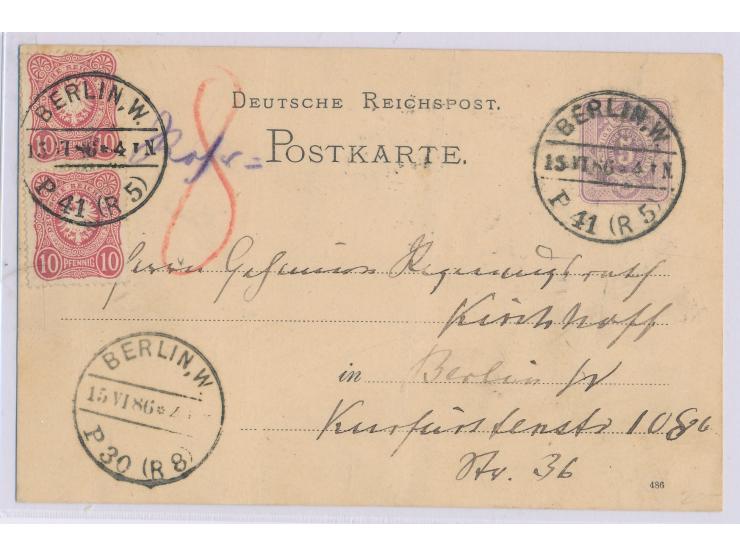 BERLIN, W.
15 VI 86 * 4 N
P 41 (R 5)
10 10
10 PFENNIG 10
8
DEUTSCHE REICHSPOST.
POSTKARTE.
5
BERLIN, W.
15 VI 86 * 4 N
P 41 (R 5)
Herrn Geheimen Regierungsrath
Kirchhoff
in Berlin W
Kurfürstenstr 108
Str. 36
BERLIN, W.
15 VI 86 *
P 30 (R 8)
486